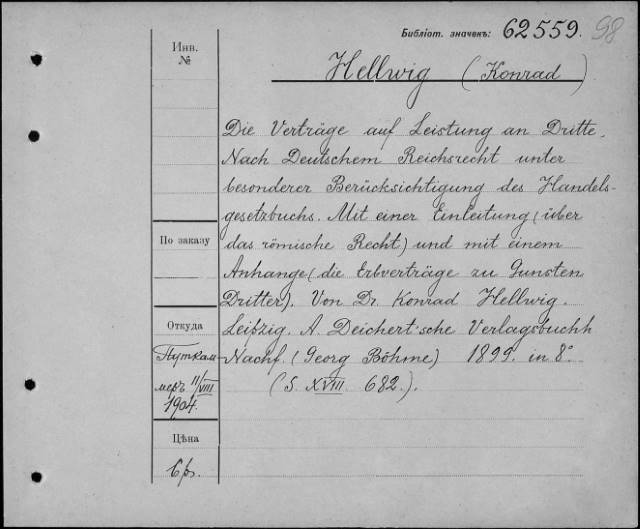 Библіот. значекъ: 62559. 98
Инв.
№
Hellwig (Konrad)
Die Verträge auf Leistung an Dritte.
Nach Deutschem Reichsrecht unter
besonderer Berücksichtigung des Handels-
gesetzbuchs. Mit einer Einleitung (über
По заказу
das römische Recht) und mit einem
Anhange (die Erbverträge zu Gunsten
Dritter). Von Dr. Konrad Hellwig.
Откуда
Leipzig. A. Deichert'sche Verlagsbuchh
Путкам-
Nachf. (Georg Böhme) 1899. in 8°
меръ 11/VIII
1904.
(S. XVIII. 682.).
Цѣна
6 р.